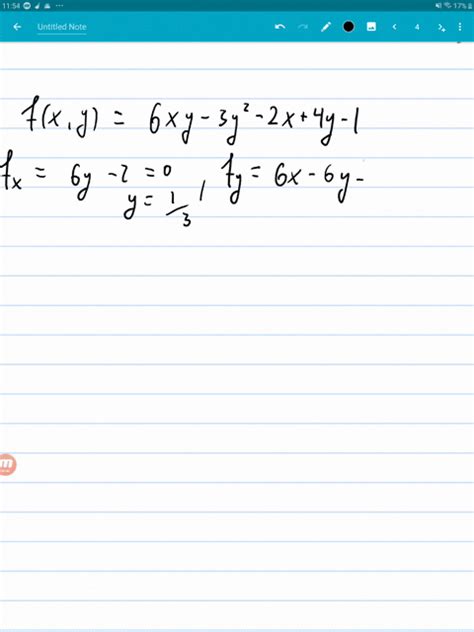 11:54 17%
Untitled Note 4
f(x,y) = 6xy-3y²-2x+4y-1
fx = 6y-2=0, fy = 6x-6y-
y = 1/3
m